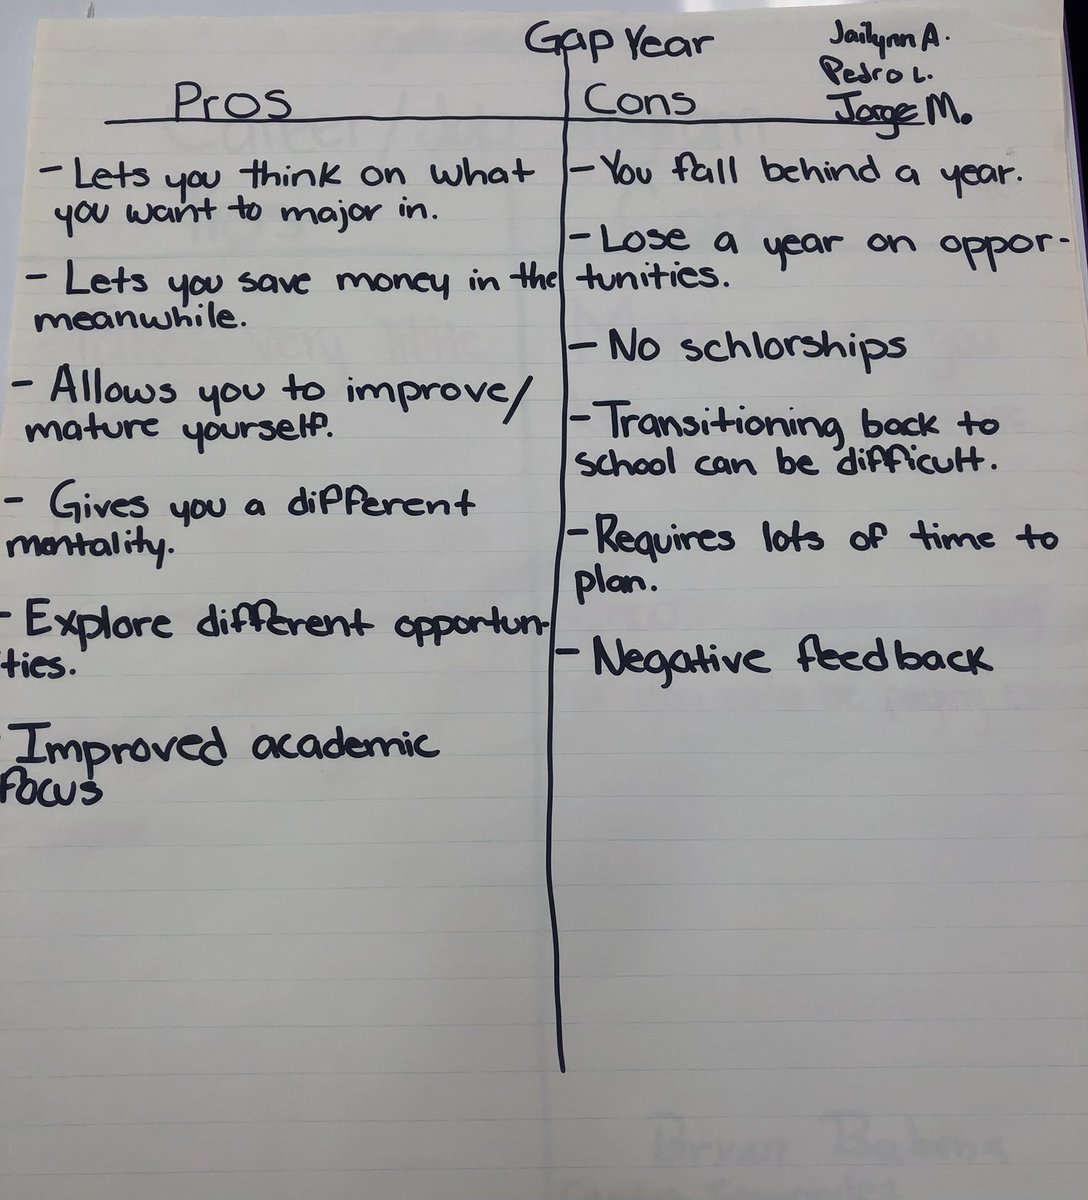 Gap Year
Jailynn A.
Pedro L.
Jorge M.
Pros
- Lets you think on what
you want to major in.
- Lets you save money in the
meanwhile.
- Allows you to improve/
mature yourself.
- Gives you a different
mentality.
- Explore different opportun-
ties.
Improved academic
focus
Cons
- You fall behind a year.
- Lose a year on oppor-
tunities.
- No schlorships
- Transitioning back to
school can be difficult.
- Requires lots of time to
plan.
- Negative feedback